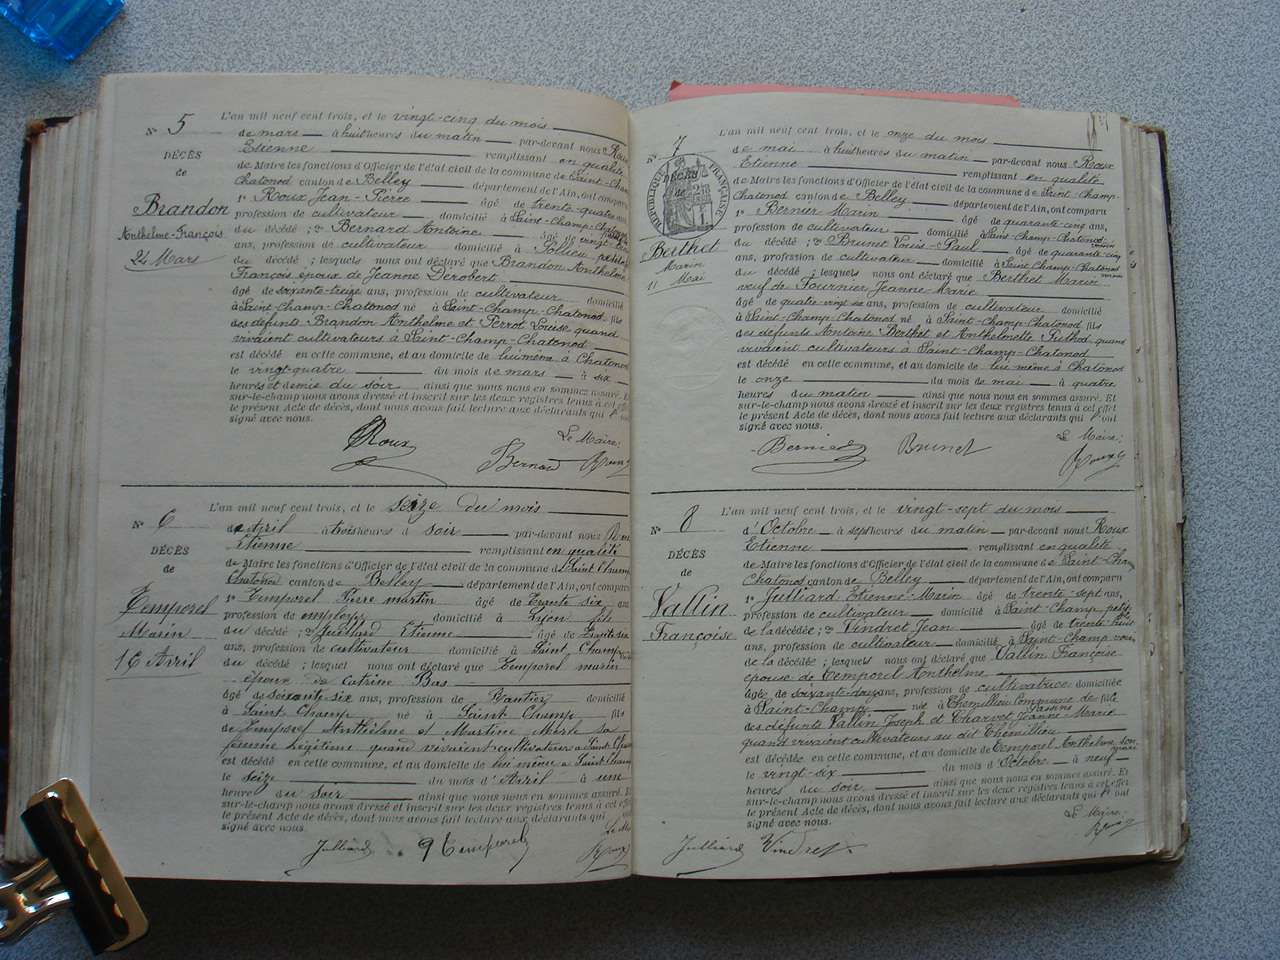 N° 5
DÉCÈS
de
Brandon
Anthelme-François
24 Mars
L'an mil neuf cent trois, et le vingt-cinq du mois
de mars à huit heures du matin par-devant nous Roux
Etienne remplissant en qualité
de Maire les fonctions d'Officier de l'état civil de la commune de Saint-Cham
Chatonod canton de Belley département de l'Ain, ont comparu
1° Roux Jean-Pierre âgé de trente-quatre ans,
profession de cultivateur domicilié à Saint-Champ-Chatonod
du décédé ; 2° Bernard Antoine âgé de vingt
ans, profession de cultivateur domicilié à Pollieu
du décédé ; lesquels nous ont déclaré que Brandon Anthelme
François époux de Jeanne Dérobert
âgé de soixante-treize ans, profession de cultivateur domicilié
à Saint-Champ-Chatonod né à Saint-Champ-Chatonod fils
des défunts Brandon Anthelme et Perrot Louise quand
vivaient cultivateurs à Saint-Champ-Chatonod
est décédé en cette commune, et au domicile de lui même à Chatonod
le vingt-quatre du mois de mars à six
heures et demie du soir ainsi que nous nous en sommes assuré. Et
sur-le-champ nous avons dressé et inscrit sur les deux registres tenus à cet effet
le présent Acte de décès, dont nous avons fait lecture aux déclarants qui
signé avec nous.
Le Maire:
Roux
Bernard
Roux
N° 6
DÉCÈS
de
Temporel
Marin
16 Avril
L'an mil neuf cent trois, et le seize du mois
de Avril à trois heures d soir par-devant nous Roux
Etienne remplissant en qualité
de Maire les fonctions d'Officier de l'état civil de la commune de Saint Champ
Chatonod canton de Belley département de l'Ain, ont comparu
1° Temporel Pierre martin âgé de Trente six ans
profession de employé domicilié à Lyon fils
du décédé ; 2° Juilliard Etienne âgé de trente six
ans, profession de cultivateur domicilié à Saint Champ
du décédé ; lesquel nous ont déclaré que Temporel marin
époux de Catrine Bas
âgé de soixante six ans, profession de Rantier domicilié
à Saint Champ né à Saint Champ fils
de Temporel Anthelme et Martine Merle sa
femme légitime quand vivaient cultivateurs a Saint Cham
est décédé en cette commune, et au domicile de lui même a Saint Cham
le seize du mois d'Avril à une
heures du Soir ainsi que nous nous en sommes assuré. Et
sur-le-champ nous avons dressé et inscrit sur les deux registres tenus à cet effet
le présent Acte de décès, dont nous avons fait lecture aux déclarants qui
signé avec nous.
Le M
Juilliard Temporel Roux
N° 7
RÉPUBLIQUE FRANÇAISE
DÉCÈS
de
Berthet
Marin
11 Mai
L'an mil neuf cent trois, et le onze du mois
de mai à huit heures du matin par-devant nous Roux
Etienne remplissant en qualité
de Maire les fonctions d'Officier de l'état civil de la commune de Saint-Champ-
Chatonod canton de Belley département de l'Ain, ont comparu
1° Bernier Marin âgé de quarante cinq ans,
profession de cultivateur domicilié à Saint-Champ-Chatonod voisin
du décédé ; 2° Brunet Louis-Paul âgé de quarante-cinq
ans, profession de cultivateur domicilié à Saint-Champ-Chatonod voisin
du décédé ; lesquels nous ont déclaré que Berthet Marin
veuf de Fournier Jeanne Marie
âgé de quatre-vingt six ans, profession de cultivateur domicilié
à Saint-Champ-Chatonod né à Saint-Champ-Chatonod fils
des défunts Antoine Berthet et Anthelmette Futhod quand
vivaient cultivateurs à Saint-Champ-Chatonod
est décédé en cette commune, et au domicile de lui même à Chatonod
le onze du mois de mai à quatre
heures du matin ainsi que nous nous en sommes assuré. Et
sur-le-champ nous avons dressé et inscrit sur les deux registres tenus à cet effet
le présent Acte de décès, dont nous avons fait lecture aux déclarants qui ont
signé avec nous.
Le Maire:
Bernier Brunet Roux
N° 8
DÉCÈS
de
Vallin
Françoise
L'an mil neuf cent trois, et le vingt-sept du mois
d'Octobre à sept heures du matin par-devant nous Roux
Etienne remplissant en qualité
de Maire les fonctions d'Officier de l'état civil de la commune de Saint-Cham
Chatonod canton de Belley département de l'Ain, ont comparu
1° Julliard Etienne-Marin âgé de trente-sept ans,
profession de cultivateur domicilié à Saint-Champ
de la décédée ; 2° Vindret Jean âgé de trente huit
ans, profession de cultivateur domicilié à Saint-Champ voisin
de la décédée ; lesquels nous ont déclaré que Vallin Françoise
épouse de Temporel Anthelme
âgée de soixante-douze ans, profession de cultivatrice domiciliée
à Saint-Champ née à Chemillieu Commune de fille
des défunts Vallin Joseph et Charvet Jeanne-Marie
quand vivaient cultivateurs au dit Chemillieu
est décédée en cette commune, et au domicile de Temporel Anthelme son mari
le vingt-six du mois d'Octobre à neuf
heures du soir ainsi que nous nous en sommes assuré. Et
sur-le-champ nous avons dressé et inscrit sur les deux registres tenus à cet effet
le présent Acte de décès, dont nous avons fait lecture aux déclarants qui ont
signé avec nous.
Le Maire,
Julliard Vindret Roux